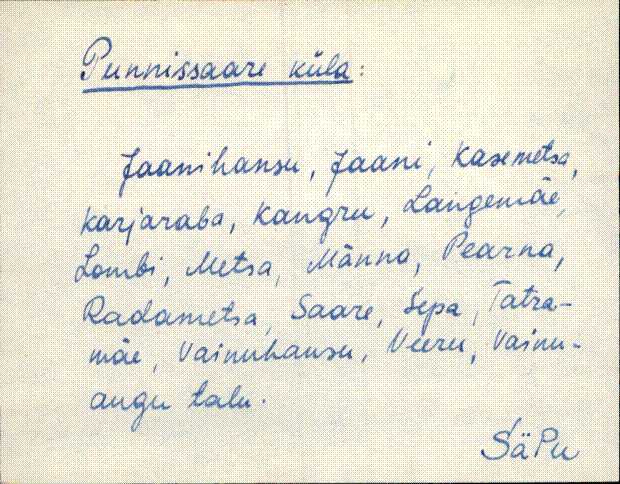 Punnissaare küla:
Jaanihansu, Jaani, Kasemetsa,
Karjaraba, Kangru, Langemäe,
Lombi, Metsa, Männa, Pearna,
Radametsa, Saare, Sepa, Tatra-
mäe, Vainuhansu, Veeru, Vainu-
augu talu.
SäPu